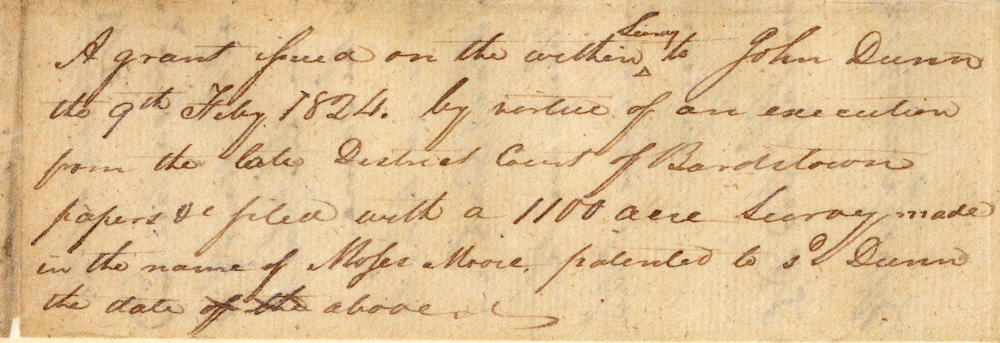 A grant issued on the within Survey to John Dunn
the 9th Feby. 1824. by vertue of an execution
from the late District Court of Bardstown
papers &c filed with a 1100 acre Survey made
in the name of Moses Moore. patented to sd Dunn
the date of the above